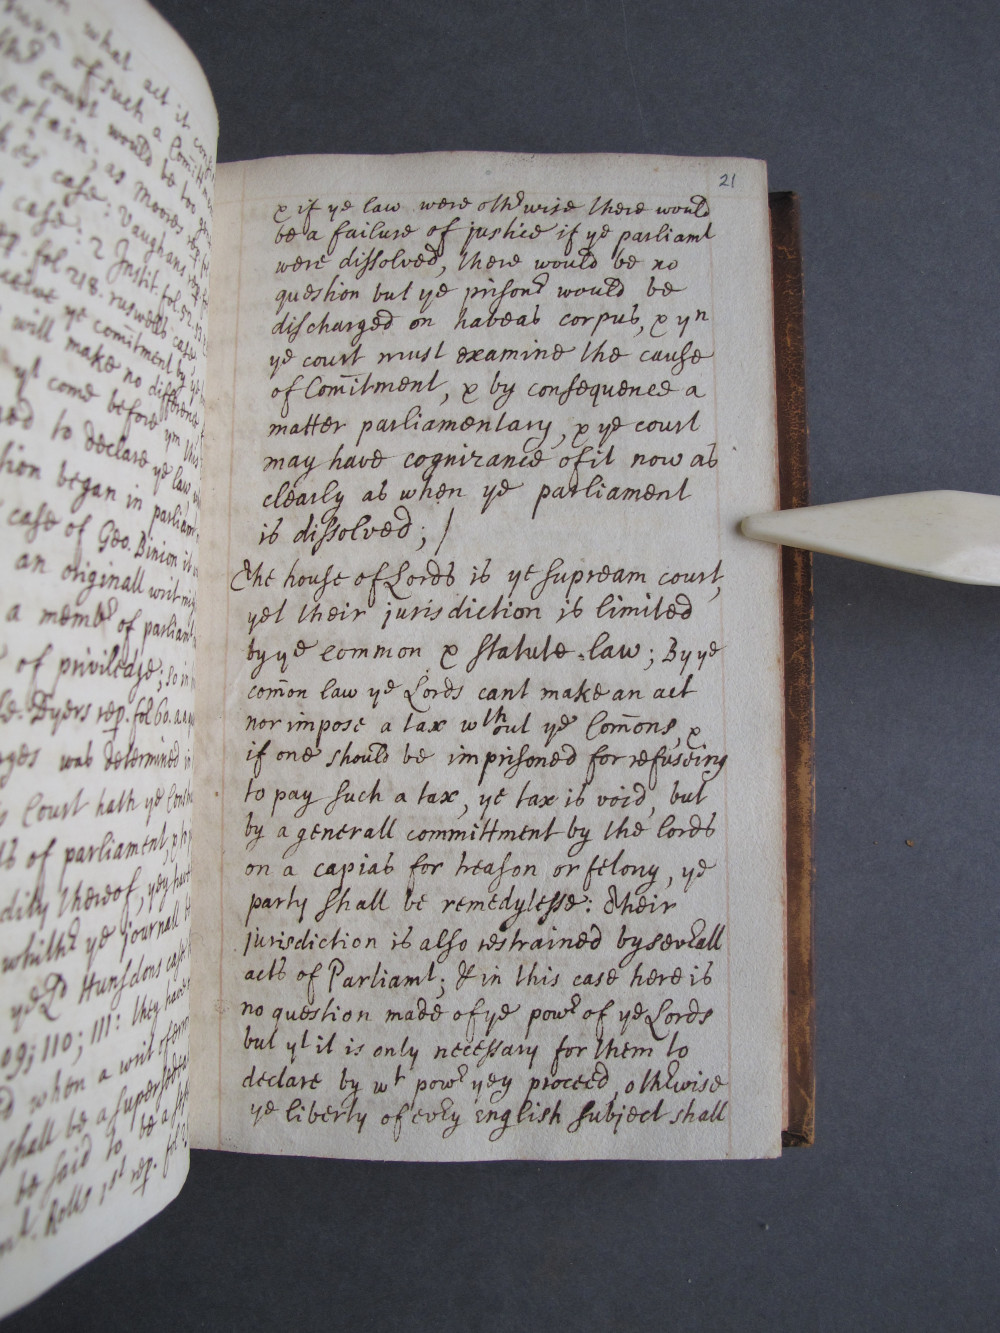 what act it
of such a Comitment
court would be too gen
ertain; as Moores rep.
case: Vaughans rep.
case: 2 Instit. fol. 52.
fol 218. ruswells case
ye comitment by ye
will make no difference
yt come before ym
to declare ye law
tion began in parliam
case of Geo. Binion it
an originall writ
a membr of parliamt
of privilege; so in
Dyers rep. fol 60.
was determined in
Court hath ye
of parliament,
dity thereof, yey have
whithr ye journall
ye Ld Hunsdons case
109; 110; 111: they have
when a writ of
shall be a supersedeas
be said to be a
Rolls 1st rep. fol
21
& if ye law were othrwise there would
be a failure of justice if ye parliamt
were dissolved, there would be no
question but ye prisonr would be
discharged on habeas corpus, & yn
ye court must examine the cause
of Com̄itment, & by consequence a
matter parliamentary, & ye court
may have cognizance of it now as
clearly as when ye parliament
is dissolved; /
The house of Lords is ye supream court,
yet their jurisdiction is limited
by ye common & statute-law; By ye
com̄on law ye Lords cant make an act
nor impose a tax wthout ye Com̄ons, &
if one should be imprisoned for refuseing
to pay such a tax, ye tax is void, but
by a generall committment by the lords
on a capias for treason or felony, ye
party shall be remedylesse: Their
jurisdiction is also restrained by severall
acts of Parliamt; & in this case here is
no question made of ye powr of ye Lords
but yt it is only necessary for them to
declare by wt powr yey proceed, othrwise
ye liberty of evry English subject shall